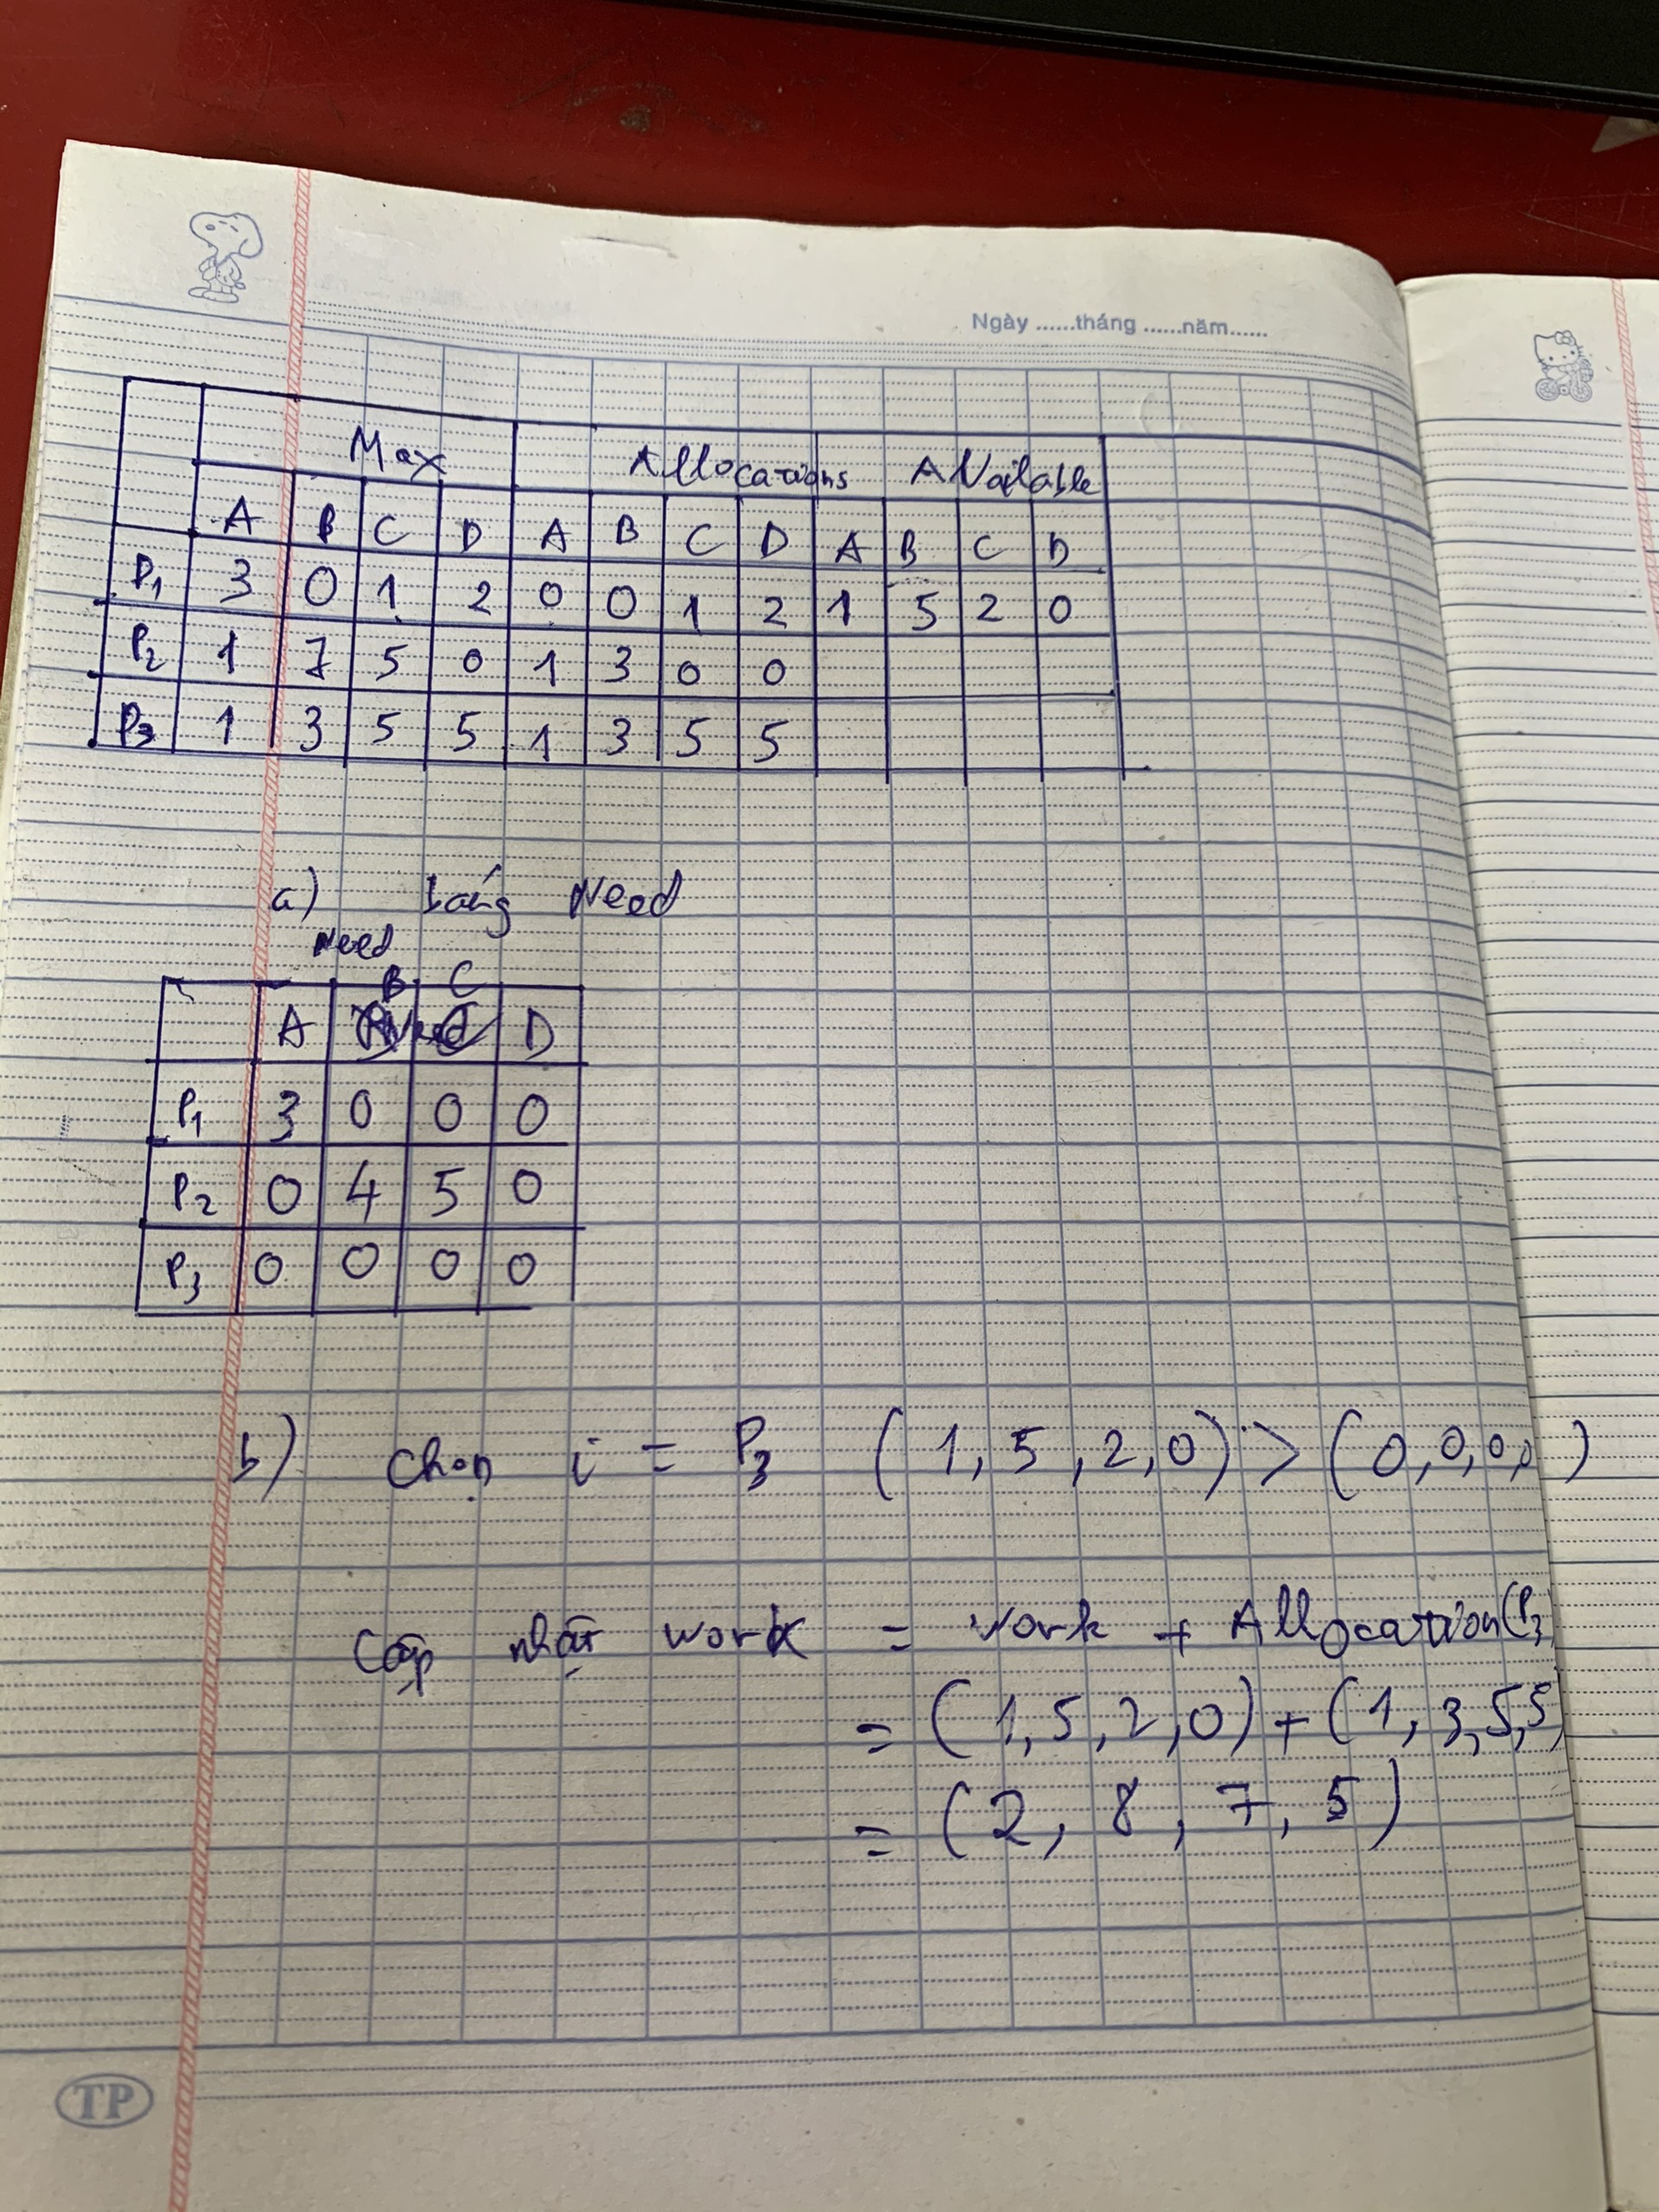 Ngày ......tháng ......năm......
Max Allocations Available
A B C D A B C D A B C D
P1 3 0 1 2 0 0 1 2 1 5 2 0
P2 1 7 5 0 1 3 0 0
P3 1 3 5 5 1 3 5 5
a) bảng Need
Need
B C
A D
P1 3 0 0 0
P2 0 4 5 0
P3 0 0 0 0
b) Chọn i = P3 (1, 5, 2, 0) > (0, 0, 0, 0)
Cập nhật work = work + Allocation(P3
= (1, 5, 2, 0) + (1, 3, 5, 5)
= (2, 8, 7, 5)
TP